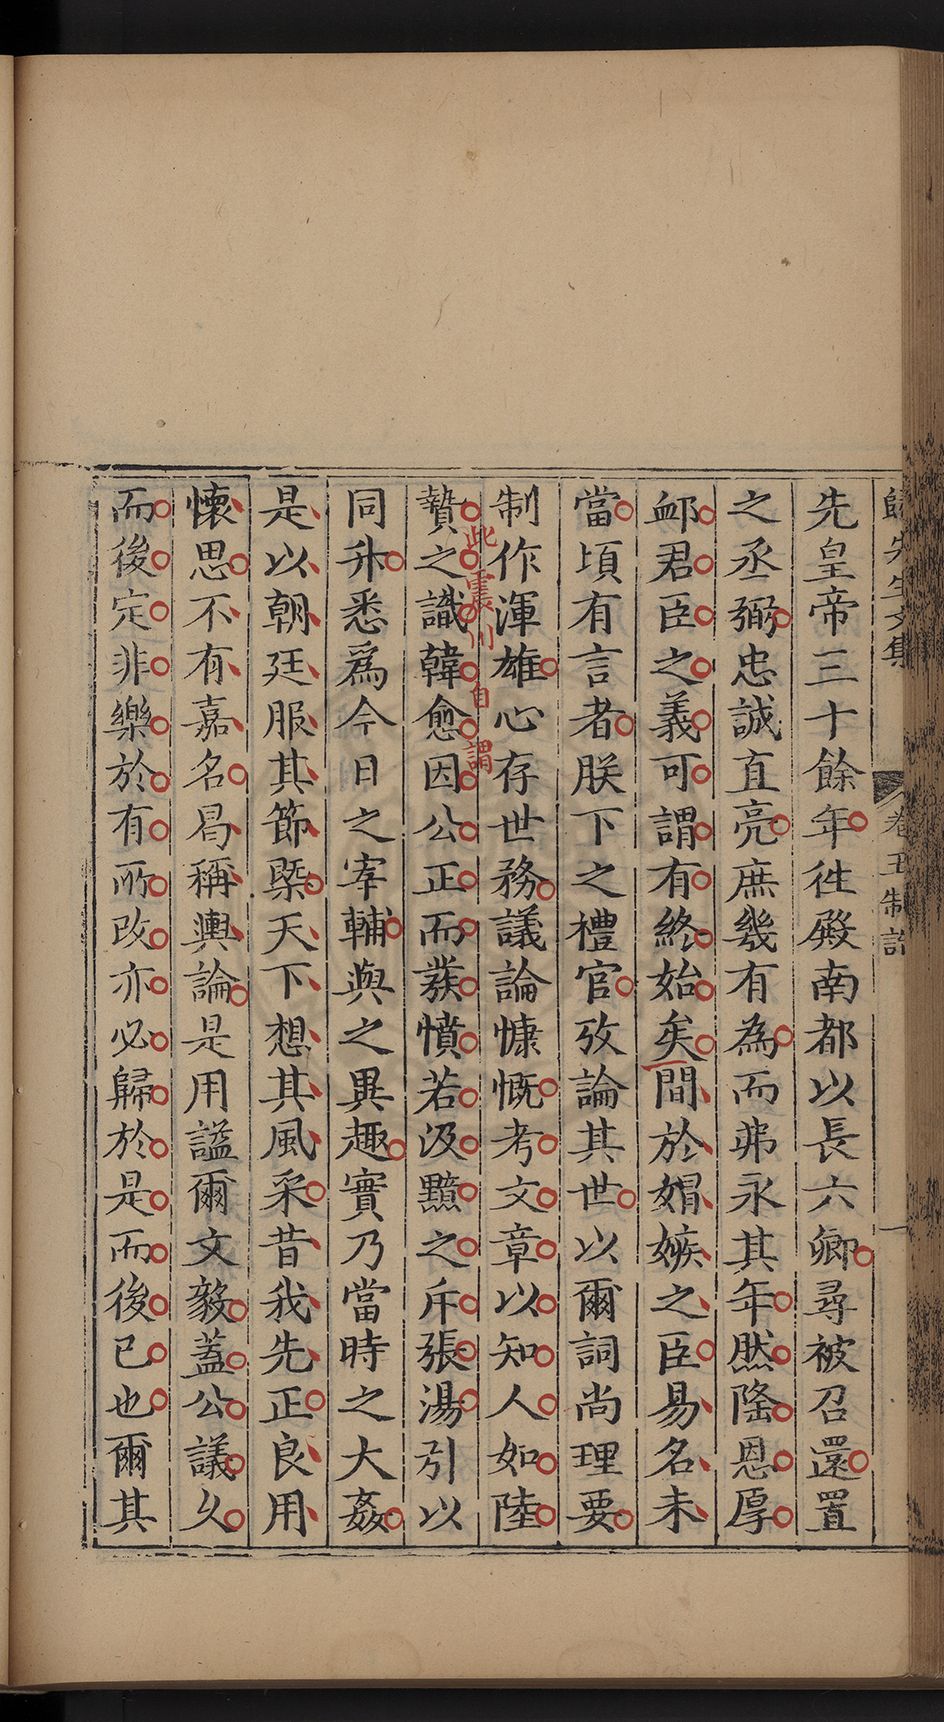 歸先生文集
卷五制誥
一
先皇帝三十餘年徃殿南都以長六卿尋被召還置
之丞弼忠誠直亮庶幾有為而弗永其年然隆恩厚
卹君臣之義可謂有終始矣間於媢嫉之臣易名未
當頃有言者朕下之禮官攷論其世以爾詞尚理要
制作渾雄心存世務議論慷慨考文章以知人如陸
贄之識韓愈因公正而𤼵憤若汲黯之斥張湯引以
此震川自謂
同升悉爲今日之宰輔與之異趣實乃當時之大姦
是以朝廷服其節槩天下想其風采昔我先正良用
懷思不有嘉名曷稱輿論是用謚爾文毅蓋公議久
而後定非樂於有所改亦必歸於是而後已也爾其